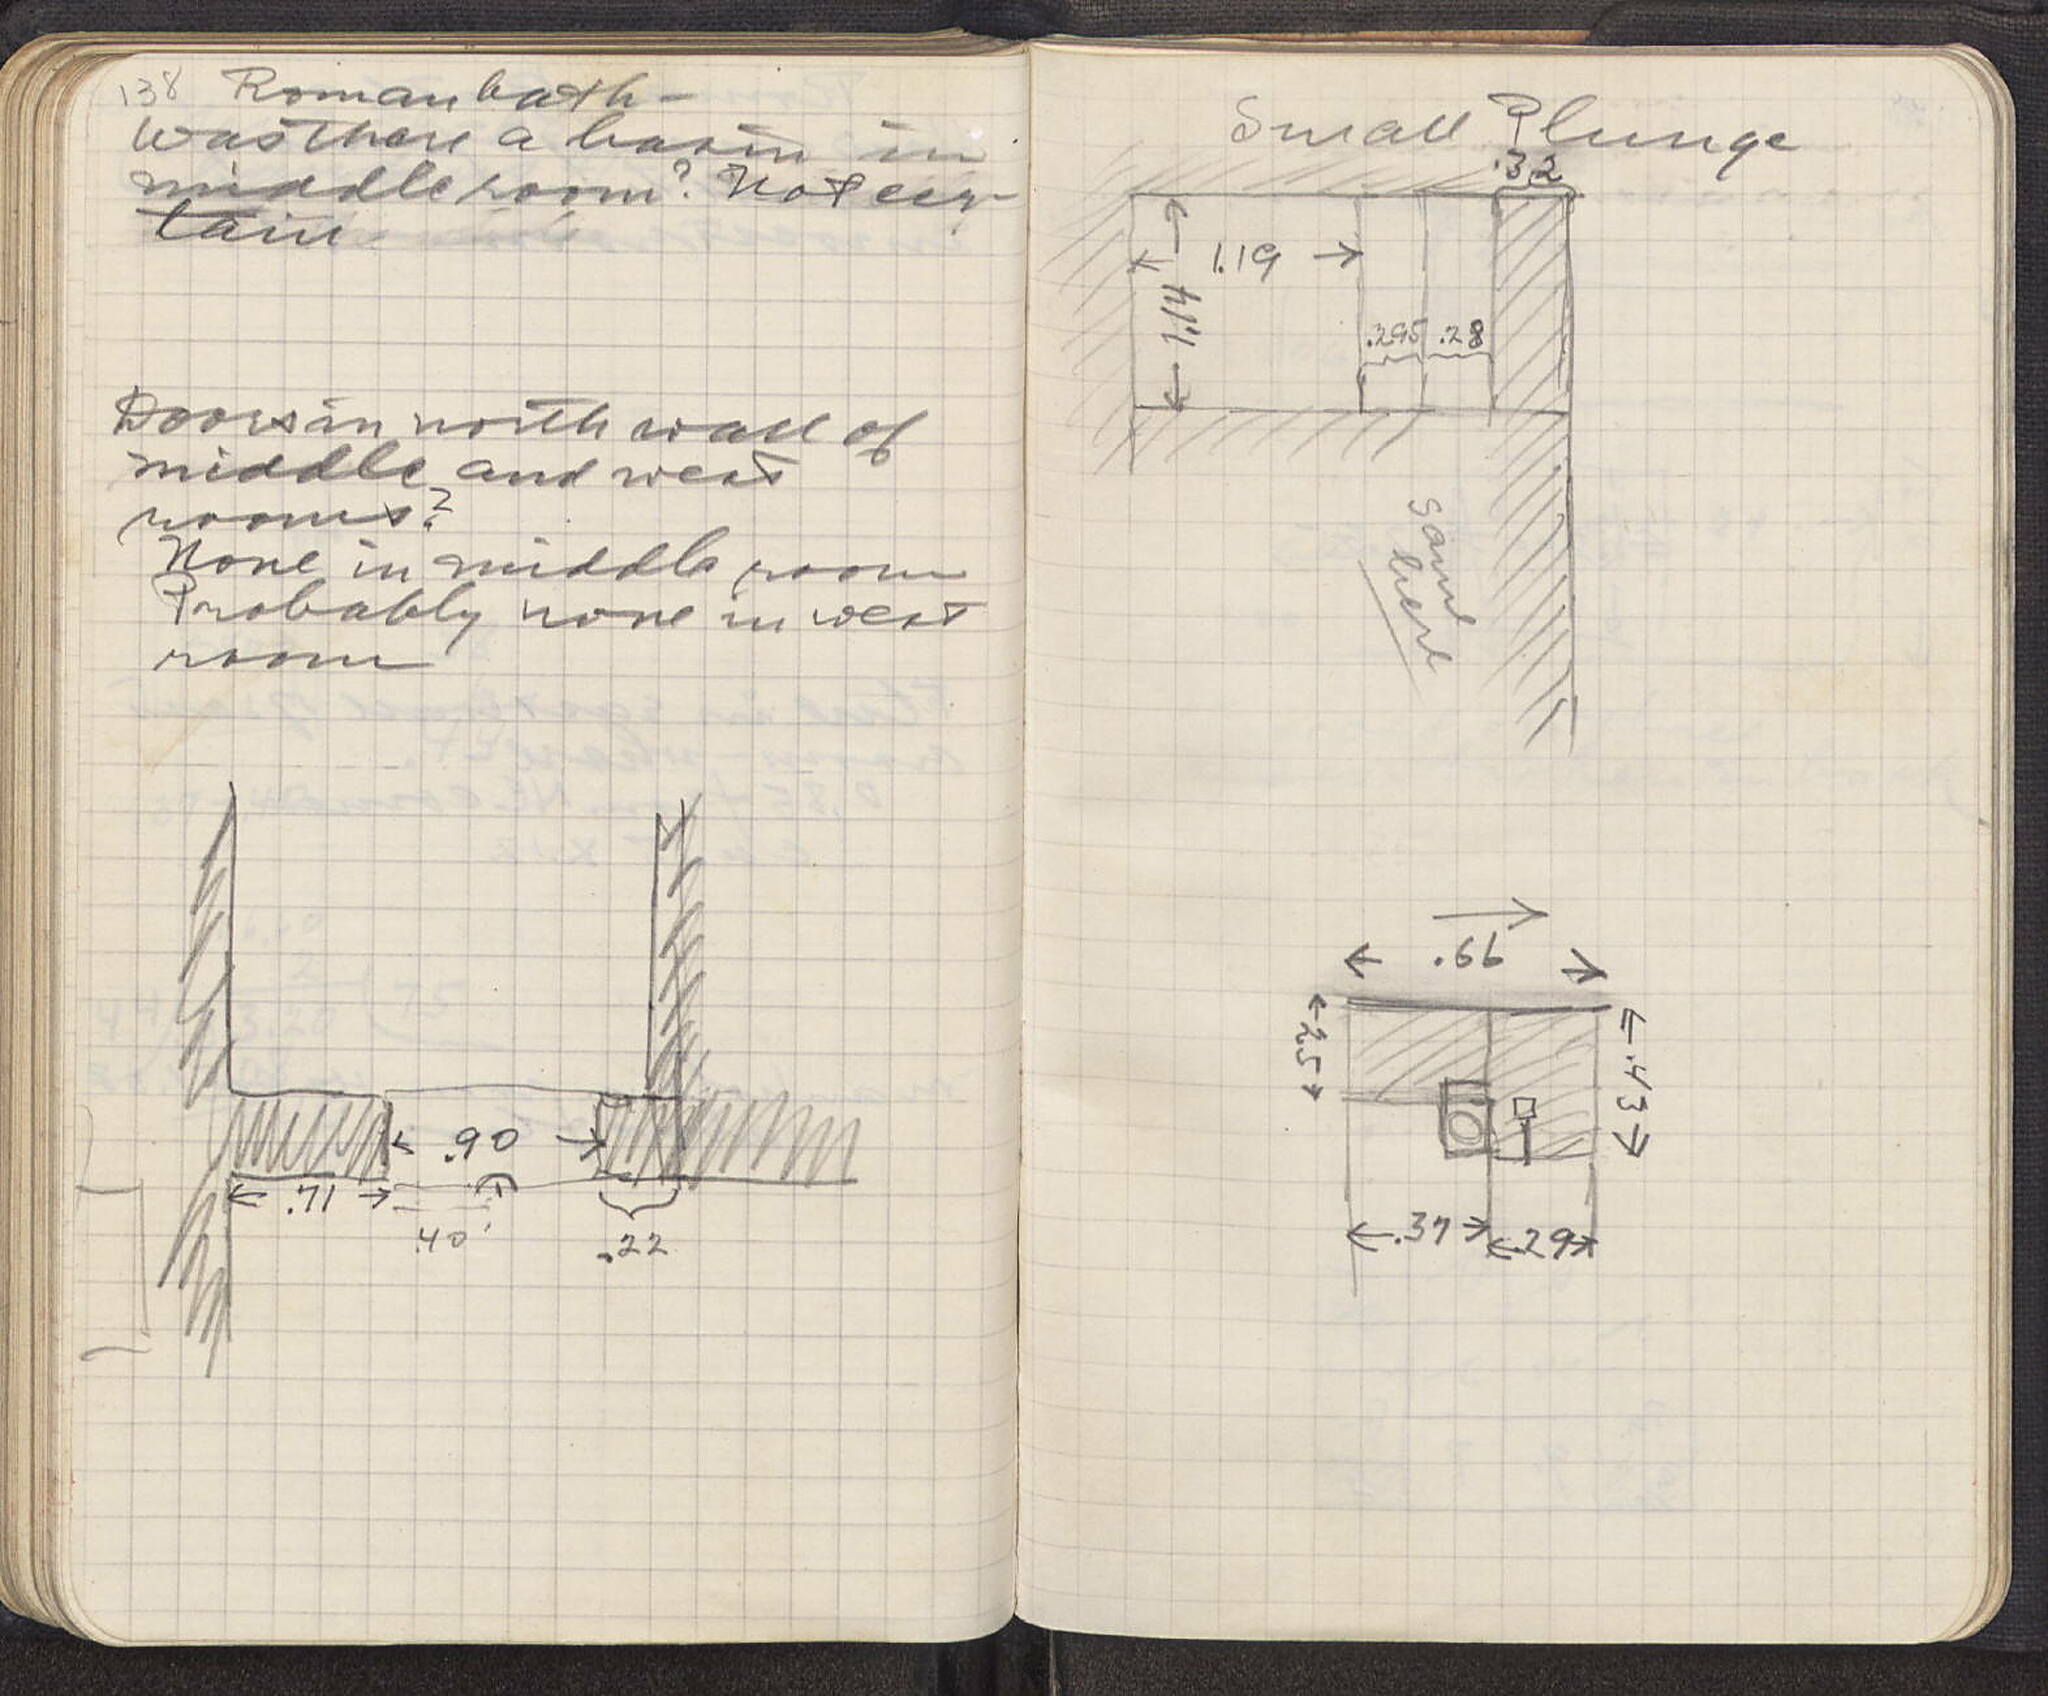 138 Roman bath –
Was there a basin in
middle room? Not cer-
tain
Doors in north wall of
middle and west
rooms?
None in middle room
Probably none in west
room
.90
.71
.40
.22
Small Plunge
.32
1.19
1.14
.295 .28
same
here
.66
.25
.43
.37 .29